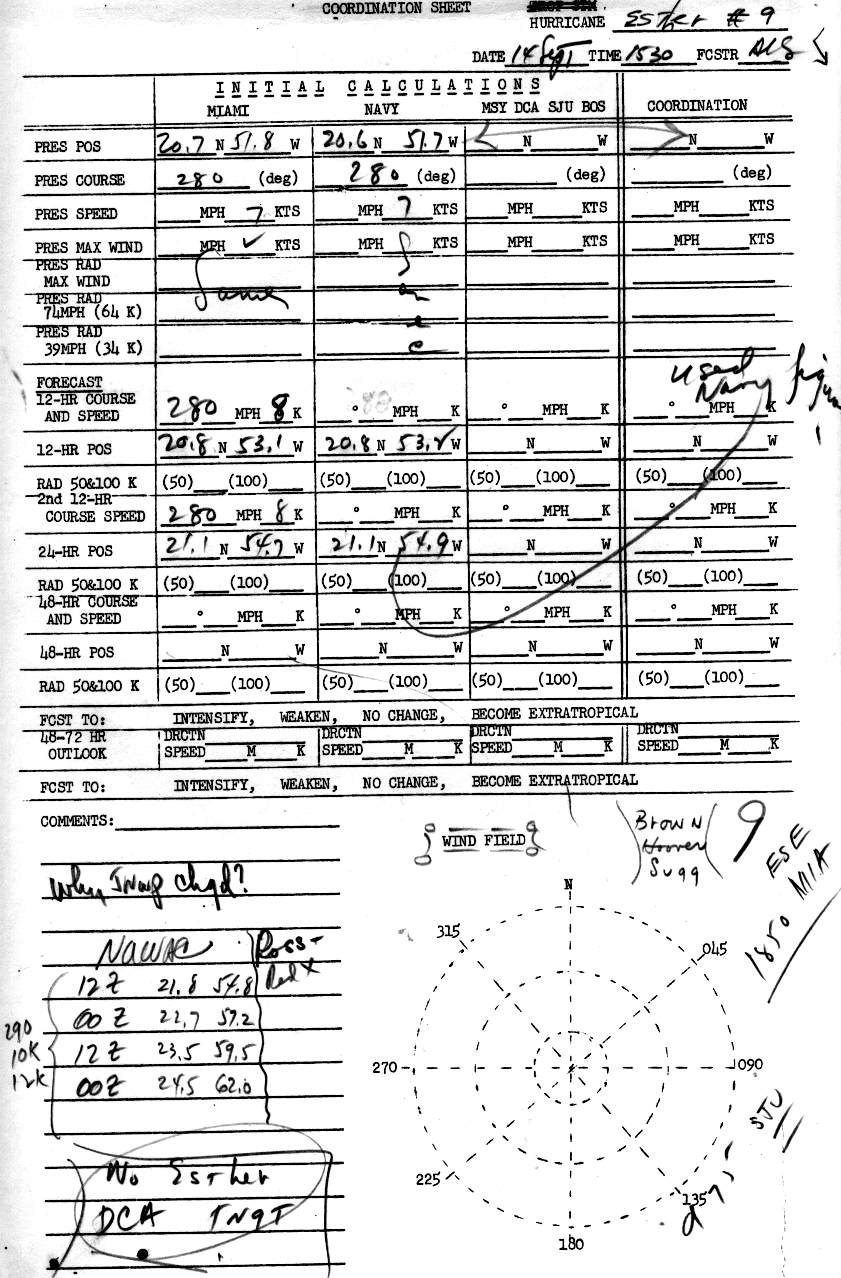 COORDINATION SHEET
HURRICANE Esther # 9
DATE 14 Sept TIME 1530 FCSTR
INITIAL CALCULATIONS
MIAMI NAVY MSY DCA SJU BOS COORDINATION
PRES POS 20.7 N 51.8 W 20.6 N 51.7 W N W N W
PRES COURSE 280 (deg) 280 (deg) (deg) (deg)
PRES SPEED MPH 7 KTS MPH 7 KTS MPH KTS MPH KTS
PRES MAX WIND MPH ✓ KTS MPH KTS MPH KTS MPH KTS
PRES RAD
MAX WIND
Same Same
PRES RAD
74MPH (64 K)
PRES RAD
39MPH (34 K)
used
Navy
FORECAST
12-HR COURSE
AND SPEED 280 MPH 8 K ° MPH K ° MPH K ° MPH K
12-HR POS 20.8 N 53.1 W 20.8 N 53.2 W N W N W
RAD 50&100 K (50) (100) (50) (100) (50) (100) (50) (100)
2nd 12-HR
COURSE SPEED 280 MPH 8 K ° MPH K ° MPH K ° MPH K
24-HR POS 21.1 N 54.7 W 21.1 N 54.9 W N W N W
RAD 50&100 K (50) (100) (50) (100) (50) (100) (50) (100)
48-HR COURSE
AND SPEED ° MPH K ° MPH K ° MPH K ° MPH K
48-HR POS N W N W N W N W
RAD 50&100 K (50) (100) (50) (100) (50) (100) (50) (100)
FCST TO: INTENSIFY, WEAKEN, NO CHANGE, BECOME EXTRATROPICAL
48-72 HR DRCTN DRCTN DRCTN DRCTN
OUTLOOK SPEED M K SPEED M K SPEED M K SPEED M K
FCST TO: INTENSIFY, WEAKEN, NO CHANGE, BECOME EXTRATROPICAL
COMMENTS:
WIND FIELD
Brown
Hoover
Sugg
9
ESE
1850 MIA
Why chgd?
NAWAC
12Z 21.8 54.8
00Z 22.7 57.2
12Z 23.5 59.5
00Z 24.5 62.0
290
10K
12K
No Esther
DCA TNGT
N
315
045
270
090
225
135
180
SJU